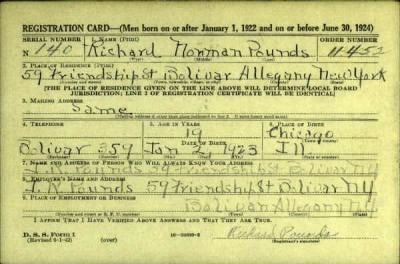 REGISTRATION CARD—(Men born on or after January 1, 1922 and on or before June 30, 1924)
SERIAL NUMBER 1. NAME (Print) ORDER NUMBER
N 140 Richard Norman Pounds 11452
(First) (Middle) (Last)
2. PLACE OF RESIDENCE (Print)
59 Friendship St Bolivar Allegany New York
(THE PLACE OF RESIDENCE GIVEN ON THE LINE ABOVE WILL DETERMINE LOCAL BOARD
JURISDICTION; LINE 2 OF REGISTRATION CERTIFICATE WILL BE IDENTICAL)
3. MAILING ADDRESS
Same
4. TELEPHONE 5. AGE IN YEARS 6. PLACE OF BIRTH
19 Chicago
DATE OF BIRTH
Bolivar 259 Jan 2, 1923 Ill
7. NAME AND ADDRESS OF PERSON WHO WILL ALWAYS KNOW YOUR ADDRESS
Pounds 59 Friendship St Bolivar NY
8. EMPLOYER'S NAME AND ADDRESS
Pounds 59 Friendship St Bolivar NY
9. PLACE OF EMPLOYMENT OR BUSINESS
Bolivar Allegany NY
I AFFIRM THAT I HAVE VERIFIED ABOVE ANSWERS AND THAT THEY ARE TRUE.
D. S. S. Form 1
Richard Pounds
(Registrant's signature)